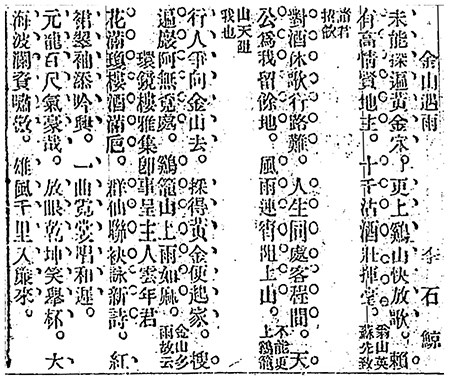 金山遇雨　李石鯨
未能探遍黃金穴。更上鷄山快放歌。賴
有高情賢地主。十千沽酒壯揮。翁山英
蘇先致
諸君
招飲
對酒休歌行路難。人生同處客程間。天
公爲我留餘地。風雨連宵阻上山。不能更
上鷄籠
山天阻
我也
行人爭向金山去。採得黃金便起家。搜
遍巖阿無覓處。鷄籠山上雨如麻。金山多
雨故云
環鏡樓雅集卽事呈主人雲年君
花滿瓊樓酒滿巵。群仙聯袂詠新詩。紅
裙翠袖添吟興。一曲霓裳唱和遲。
元龍百尺氣豪哉。放眼乾坤笑舉杯。大
海波瀾資嘯傲。雄風千里入簾來。